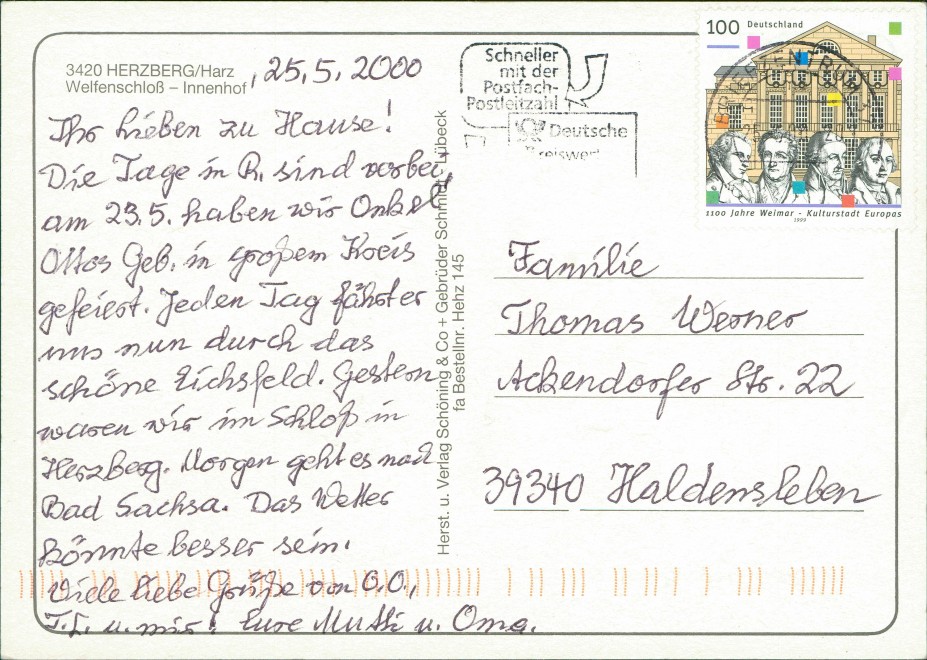 3420 HERZBERG/Harz
Welfenschloß – Innenhof
, 25.5.2000
Ihr lieben zu Hause!
Die Tage in R. sind vorbei,
am 23.5. haben wir Onkel
Ottos Geb. in großem Kreis
gefeiert. Jeden Tag fährt er
uns nun durch das
schöne Eichsfeld. Gestern
waren wir im Schloß in
Herzberg. Morgen geht es nach
Bad Sachsa. Das Wetter
könnte besser sein.
Viele liebe Grüße von O.O.,
T.I. u. mir! Eure Mutti u. Oma.
Herst. u. Verlag Schöning & Co + Gebrüder Schmidt, Lübeck
fa Bestellnr. Hehz 145
Schneller
mit der
Postfach-
Postleitzahl
Deutsche
100 Deutschland
1100 Jahre Weimar - Kulturstadt Europas
1999
Familie
Thomas Werner
Ackendorfer Str. 22
39340 Haldensleben